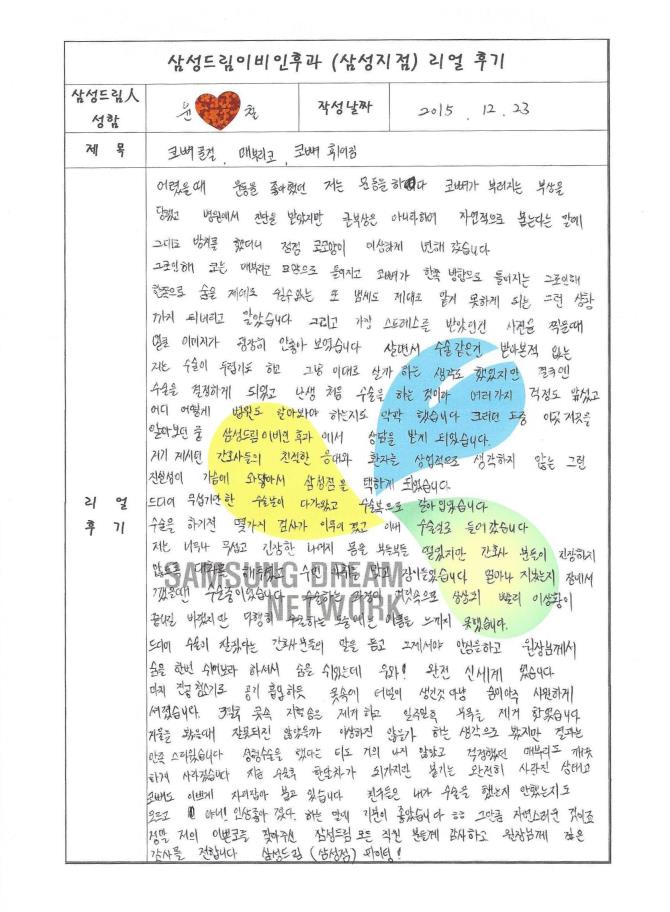 삼성드림이비인후과 (삼성지점) 리얼 후기
삼성드림人
성함
윤 철
작성날짜
2015. 12. 23
제 목
코뼈골절, 매부리코, 코뼈 휘어짐
리 얼
후 기
어렸을때 운동을 좋아했던 저는 운동을 하다 코뼈가 부러지는 부상을
당했고 병원에서 진단을 받았지만 큰부상은 아니라하여 자연적으로 붙는다는 말에
그대로 방치를 했더니 점점 코모양이 이상하게 변해 갔습니다
그로인해 코는 매부리코 모양으로 틀어지고 코뼈가 한쪽 방향으로 틀어지는 그로인해
한쪽으로 숨을 제대로 쉴수없는 또 냄새도 제대로 맡게 못하게 되는 그런 상황
까지 되버리고 말았습니다 그리고 가장 스트레스를 받았던건 사진을 찍을때
얼굴 이미지가 굉장히 안좋아 보였습니다 살면서 수술같은건 받아본적 없는
저는 수술이 두렵기도 하고 그냥 이대로 살까 하는 생각도 했었지만 결국엔
수술을 결정하게 되었고 난생 처음 수술을 하는 것이라 여러가지 걱정도 많았고
어디 어떻게 병원도 알아봐야 하는지도 막막 했습니다 그러던 도중 이곳저곳을
알아보던 중 삼성드림이비인후과에서 상담을 받게 되었습니다.
저기 계시던 간호사들의 친절한 응대와 환자를 상업적으로 생각하지 않는 그런
진실성이 가슴에 와닿아서 삼성점을 택하게 되었습니다.
드디어 무섭기만한 수술날이 다가왔고 수술복으로 갈아입었습니다
수술을 하기전 몇가지 검사가 이루어졌고 이내 수술실로 들어갔습니다
저는 너무나 무섭고 긴장한 나머지 몸을 부들부들 떨었지만 간호사 분들이 긴장하지
않도록 대화를 해주셨고 수면 마취를 맡고 잠이들었습니다 얼마나 지났는지 잠에서
깼을때 수술중이었습니다 수술하는 과정이 머릿속으로 상상되 빨리 이상황이
끝나길 바랬지만 다행히 수술하는 도중에는 아픔을 느끼지 못했습니다.
드디어 수술이 잘됐다는 간호사분들의 말을 듣고 그제서야 안심을하고 원장님께서
숨을 한번 쉬어보라 하셔서 숨을 쉬었는데 우와! 완전 신세계 였습니다
마치 진공청소기로 공기 흡입하듯 콧속에 터널이 생긴것 마냥 숨이아주 시원하게
쉬어졌습니다. 3일후 콧속 지혈솜은 제거 하고 일주일후 부목을 제거 하였습니다
거울을 봤을때 잘못되진 않았을까 이상하진 않을까 하는 생각으로 봤지만 결과는
만족 스러웠습니다 성형수술을 했다는 티도 거의 나지 않았고 걱정했던 매부리도 깨끗
하게 사라졌습니다 지금 수술후 한달차가 되가지만 붓기는 완전히 사라진 상태고
코뼈도 이쁘게 자리잡아 붙고 있습니다 친구들은 내가 수술을 했는지 안했는지도
모르고 야너! 인상좋아 졌다. 하는 말에 기분이 좋았습니다 ㅎㅎ 그만큼 자연스러운 것이죠
정말 저의 이쁜코를 찾아주신 삼성드림 모든 직원 분들께 감사하고 원장님께 깊은
감사를 전합니다 삼성드림 (삼성점) 파이팅!
SAMSUNG DREAM
NETWORK